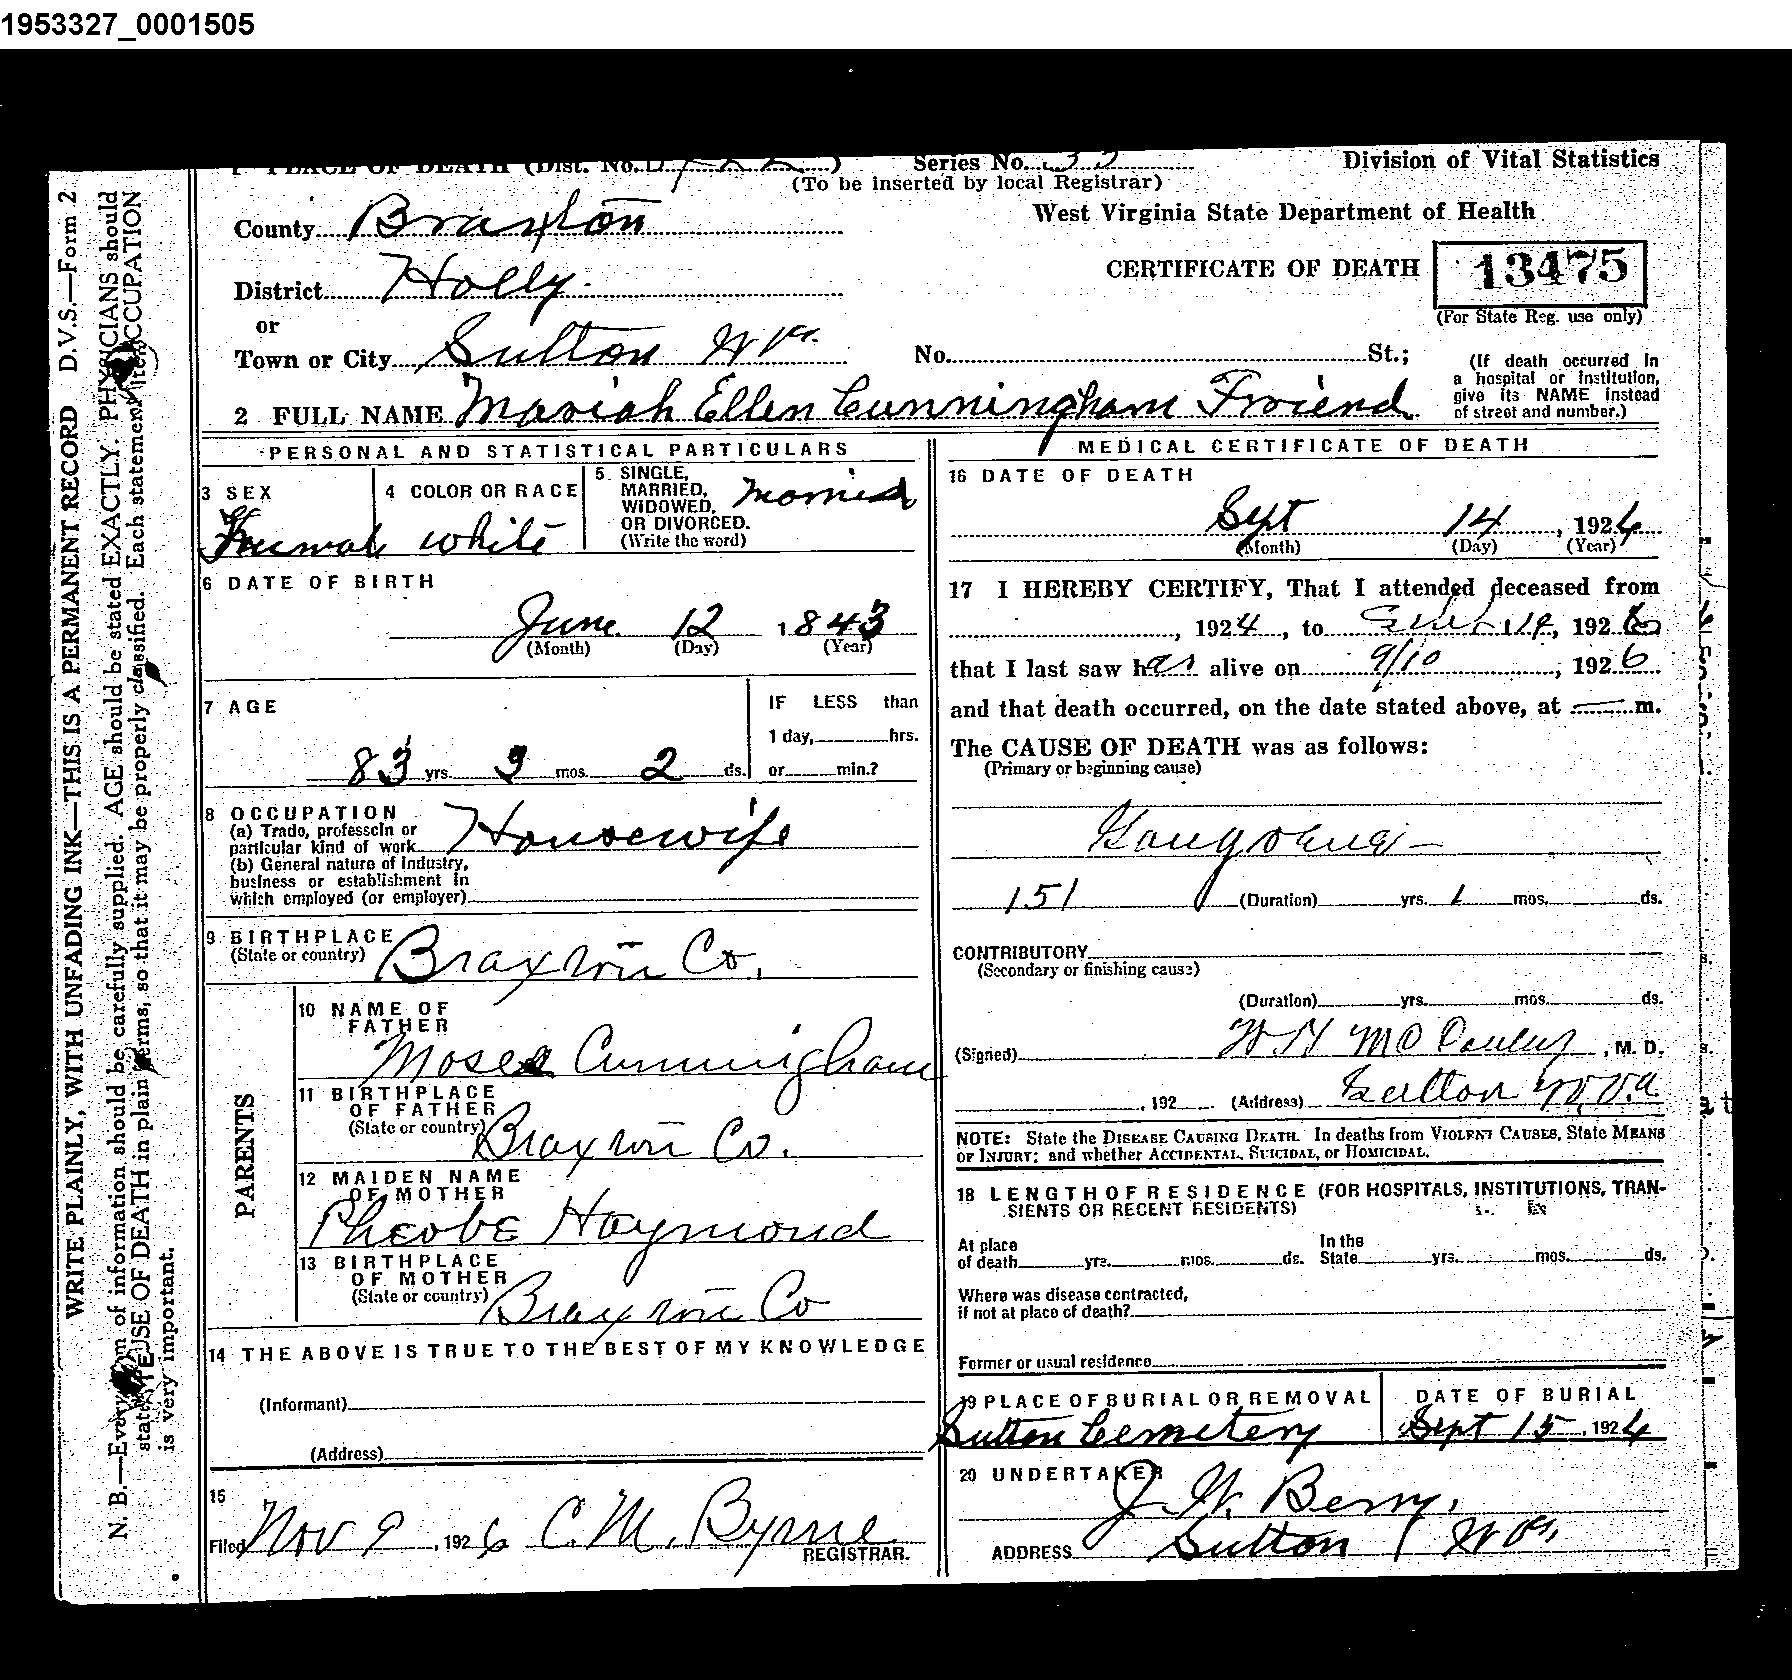 1953327_0001505
1 PLACE OF DEATH (Dist. No. ) Series No. 33 Division of Vital Statistics
(To be inserted by local Registrar)
West Virginia State Department of Health
County Braxton
CERTIFICATE OF DEATH 13475
(For State Reg. use only)
District Holly
or
Town or City Sutton W Va. No. St.;
(If death occurred in
a hospital or institution,
give its NAME instead
of street and number.)
2 FULL NAME Mariah Ellen Cunningham Friend
PERSONAL AND STATISTICAL PARTICULARS
3 SEX
Femal
4 COLOR OR RACE
white
5 SINGLE,
MARRIED,
WIDOWED,
OR DIVORCED.
(Write the word)
Married
6 DATE OF BIRTH
June 12 1843
(Month) (Day) (Year)
7 AGE
83 yrs. 3 mos. 2 ds.
IF LESS than
1 day, hrs.
or min.?
8 OCCUPATION
(a) Trade, profession or
particular kind of work Housewife
(b) General nature of industry,
business or establishment in
which employed (or employer)
9 BIRTHPLACE
(State or country) Braxton Co.
PARENTS
10 NAME OF
FATHER
Moses Cunningham
11 BIRTHPLACE
OF FATHER
(State or country) Braxton Co.
12 MAIDEN NAME
OF MOTHER
Pheobe Haymond
13 BIRTHPLACE
OF MOTHER
(State or country) Braxton Co
14 THE ABOVE IS TRUE TO THE BEST OF MY KNOWLEDGE
(Informant)
(Address)
15
Filed Nov 9, 1926 C. M. Byrne
REGISTRAR.
MEDICAL CERTIFICATE OF DEATH
16 DATE OF DEATH
Sept 14, 1926
(Month) (Day) (Year)
17 I HEREBY CERTIFY, That I attended deceased from
, 1924, to Sept 14, 1926
that I last saw her alive on 9/10, 1926
and that death occurred, on the date stated above, at — m.
The CAUSE OF DEATH was as follows:
(Primary or beginning cause)
Gangrene
151 (Duration) yrs. 1 mos. ds.
CONTRIBUTORY
(Secondary or finishing cause)
(Duration) yrs. mos. ds.
(Signed) W H McCauley, M. D.
, 192 (Address) Sutton W. Va
NOTE: State the DISEASE CAUSING DEATH. In deaths from VIOLENT CAUSES, State MEANS
OF INJURY; and whether ACCIDENTAL, SUICIDAL, or HOMICIDAL.
18 LENGTH OF RESIDENCE (FOR HOSPITALS, INSTITUTIONS, TRAN-
SIENTS OR RECENT RESIDENTS)
At place
of death yrs. mos. ds.
In the
State yrs. mos. ds.
Where was disease contracted,
if not at place of death?
Former or usual residence
19 PLACE OF BURIAL OR REMOVAL
Sutton Cemetery
DATE OF BURIAL
Sept 15, 1926
20 UNDERTAKER
J. W. Berry,
ADDRESS Sutton, W Va.
WRITE PLAINLY, WITH UNFADING INK—THIS IS A PERMANENT RECORD D.V.S.—Form 2
N. B.—Every item of information should be carefully supplied. AGE should be stated EXACTLY. PHYSICIANS should
state CAUSE OF DEATH in plain terms, so that it may be properly classified. Each statement OCCUPATION
is very important.